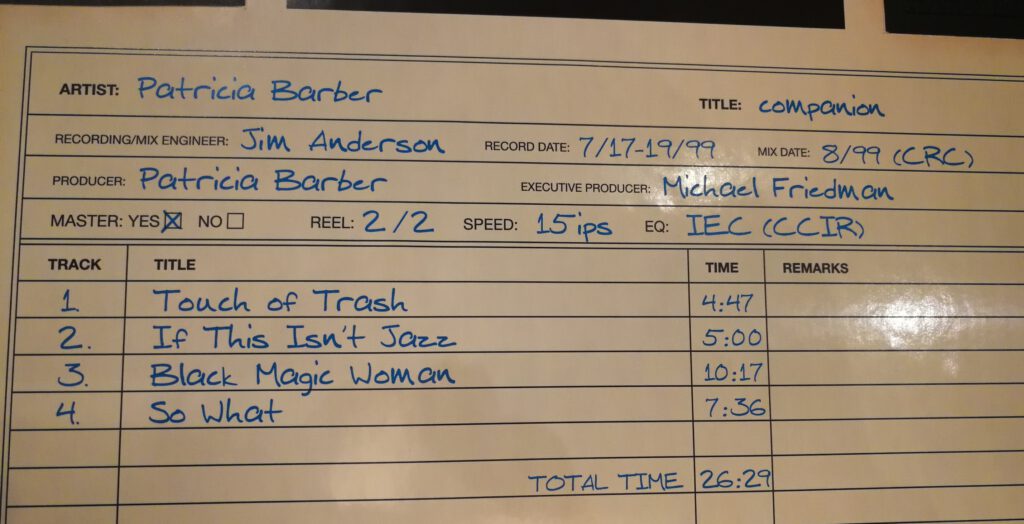 ARTIST: Patricia Barber TITLE: companion
RECORDING/MIX ENGINEER: Jim Anderson RECORD DATE: 7/17-19/99 MIX DATE: 8/99 (CRC)
PRODUCER: Patricia Barber EXECUTIVE PRODUCER: Michael Friedman
MASTER: YES ☒ NO ☐ REEL: 2/2 SPEED: 15ips EQ: IEC (CCIR)
TRACK TITLE TIME REMARKS
1 Touch of Trash 4:47
2. If This Isn't Jazz 5:00
3. Black Magic Woman 10:17
4. So What 7:36
TOTAL TIME 26:29